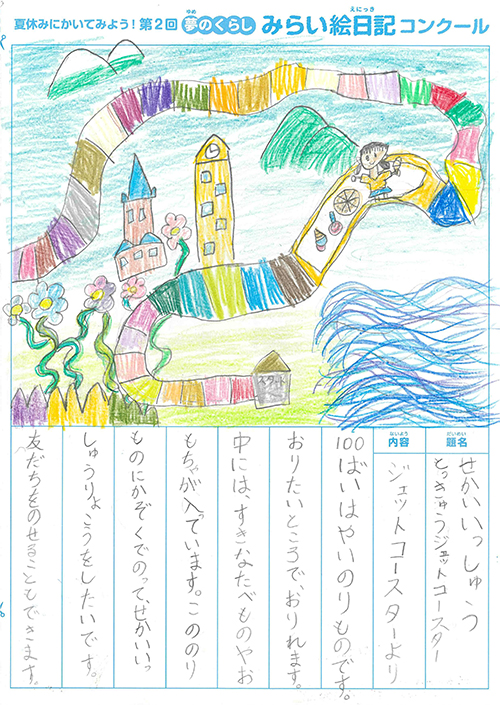 夏休みにかいてみよう!第2回 夢のくらし みらい絵日記コンクール
ゆめ
えにっき
スタート
だいめい
題名
せかいいっしゅう
とっきゅうジェットコースター
ないよう
内容
ジェットコースターより
100ばいはやいのりものです。
おりたいところで、おりれます。
中には、すきなたべものやお
もちゃが入っています。このの り
ものにかぞくでのって、せかいいっ
しゅうりょこうをしたいです。
友だちをのせることもできます。